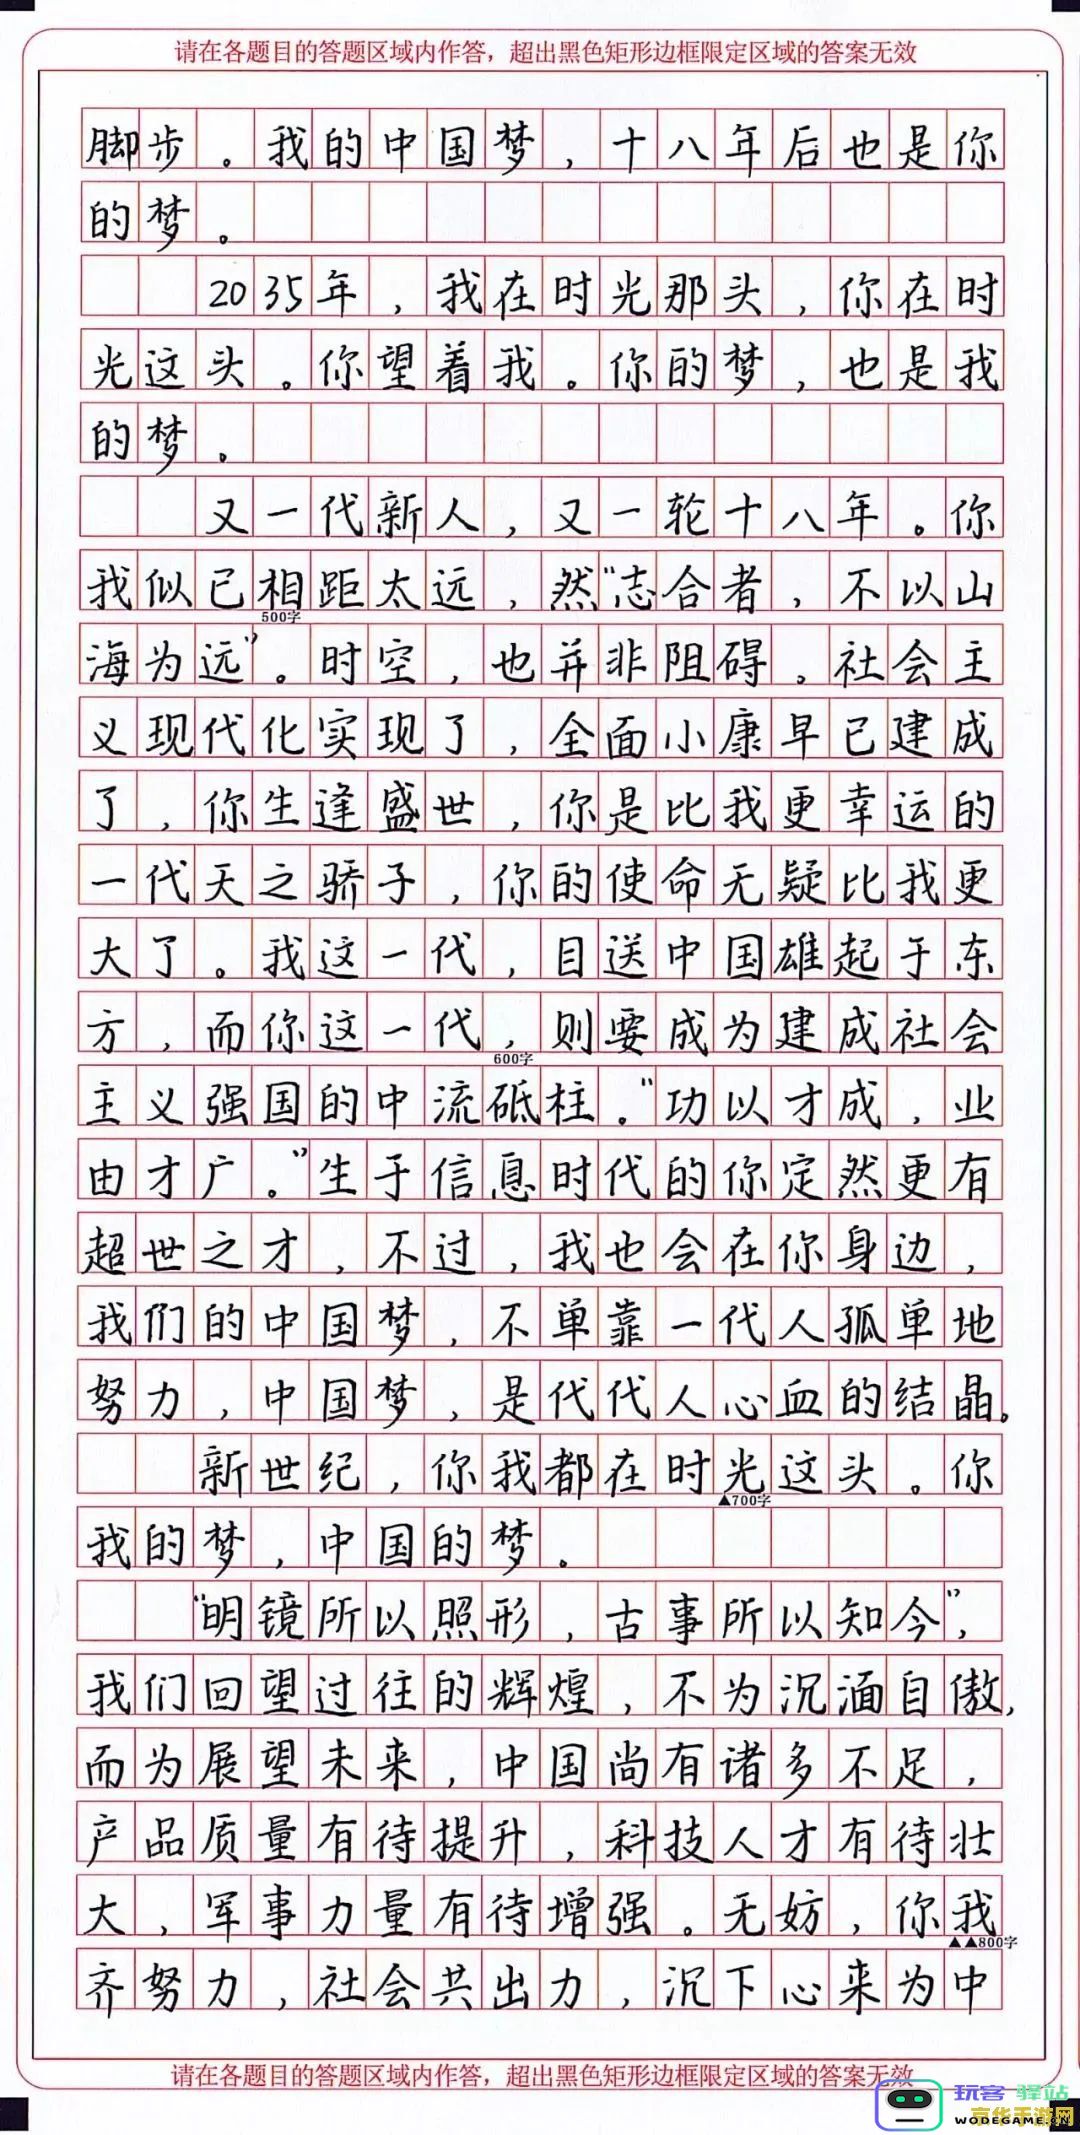 请在各题目的答题区域内作答，超出黑色矩形边框限定区域的答案无效
脚步。我的中国梦，十八年后也是你
的梦。
2035年，我在时光那头，你在时
光这头。你望着我。你的梦，也是我
的梦。
又一代新人，又一轮十八年。你
我似已相距太远，然“志合者，不以山
500字
海为远”。时空，也并非阻碍。社会主
义现代化实现了，全面小康早已建成
了，你生逢盛世，你是比我更幸运的
一代天之骄子，你的使命无疑比我更
大了。我这一代，目送中国雄起于东
方，而你这一代，则要成为建成社会
600字
主义强国的中流砥柱。“功以才成，业
由才广。”生于信息时代的你定然更有
超世之才，不过，我也会在你身边，
我们的中国梦，不单靠一代人孤单地
努力，中国梦，是代代人心血的结晶。
新世纪，你我都在时光这头。你
▲700字
我的梦，中国的梦。
“明镜所以照形，古事所以知今”，
我们回望过往的辉煌，不为沉湎自傲，
而为展望未来，中国尚有诸多不足，
产品质量有待提升，科技人才有待壮
大，军事力量有待增强。无妨，你我
▲▲800字
齐努力，社会共出力，沉下心来为中
请在各题目的答题区域内作答，超出黑色矩形边框限定区域的答案无效
玩客 驿站
京华手游网
WODEGAME.CN